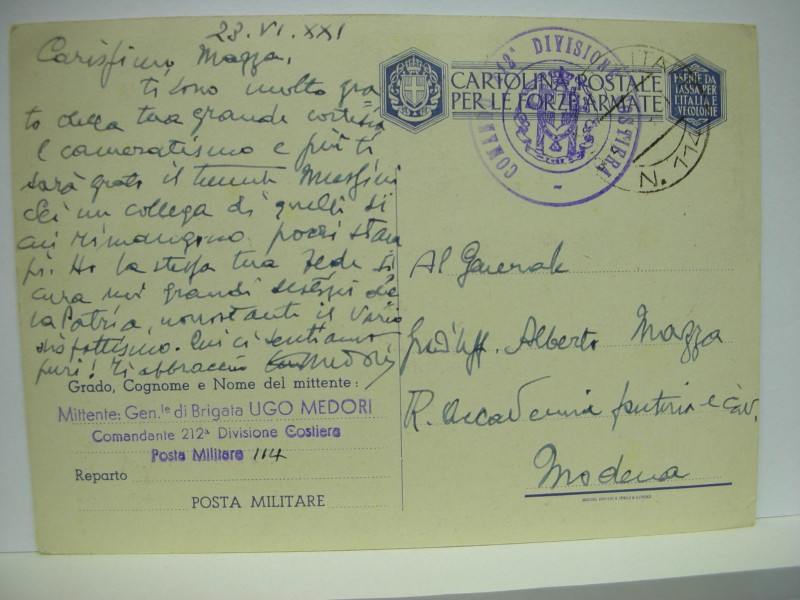 23.VI.XXI
Carissimo Mazza,
ti sono molto gra
to della tua grande cortesia
e cameratismo e più ti
sarà grato il tenente
Sei un collega di quelli di
cui rimangono pochi
Ho la stessa tua fede si
cura nei grandi destini de
la Patria, nonostante il vario
disfattismo. Qui ci sentiamo
puri! Ti abbraccio Medori
Grado, Cognome e Nome del mittente:
Mittente: Gen.le di Brigata UGO MEDORI
Comandante 212a Divisione Costiera
Posta Militare 114
Reparto
POSTA MILITARE
CARTOLINA POSTALE
PER LE FORZE ARMATE
ESENTE DA
TASSA PER
L'ITALIA E
COLONIE
DIVISIONE
N. 114
Al Generale
Alberto Mazza
R. Accademia fanteria e cav.
Modena